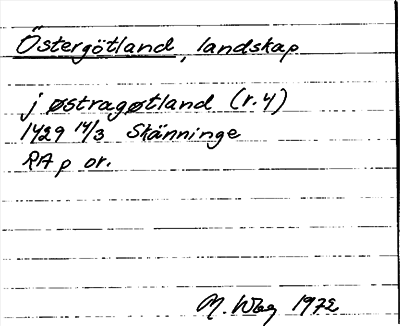 Östergötland, landskap
j østragøtland (r. 4)
1429 14/3 Skänninge
RA p or.
M. Wbg 1972